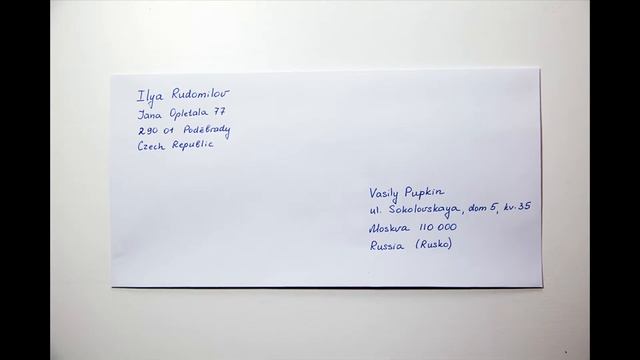 Ilya Rudomilov
Jana Opletala 77
290 01 Poděbrady
Czech Republic
Vasily Pupkin
ul. Sokolovskaya, dom 5, kv. 35
Moskva 110 000
Russia (Rusko)